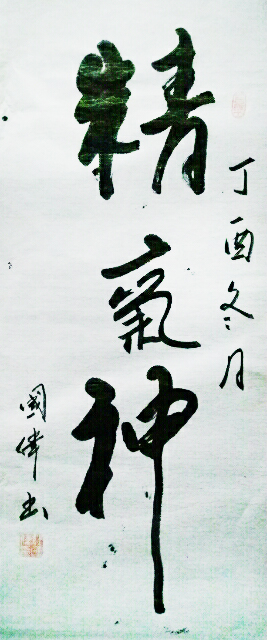 精氣神
丁酉冬月
國偉书